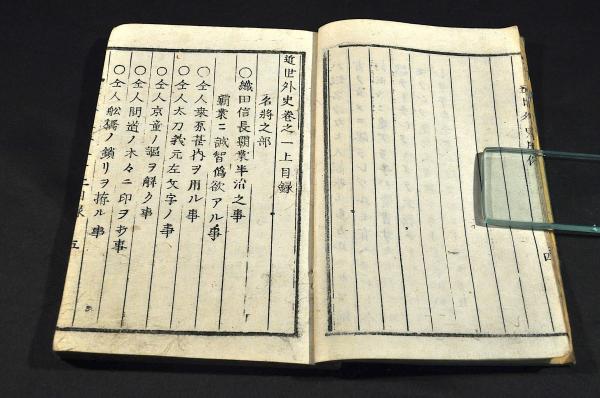 近世外史卷之一上目録
名将之部
〇織田信長覇業半治之事
覇業ニ誠智偽欲アル事
〇仝人 ヲ用ル事
〇仝人太刀義元左文字ノ事
〇仝人京童ノ謳ヲ解ク事
〇仝人間道ノ木々ニ印ヲ 事
〇仝人舩橋ノ鎖リヲ揀ル事
五
四